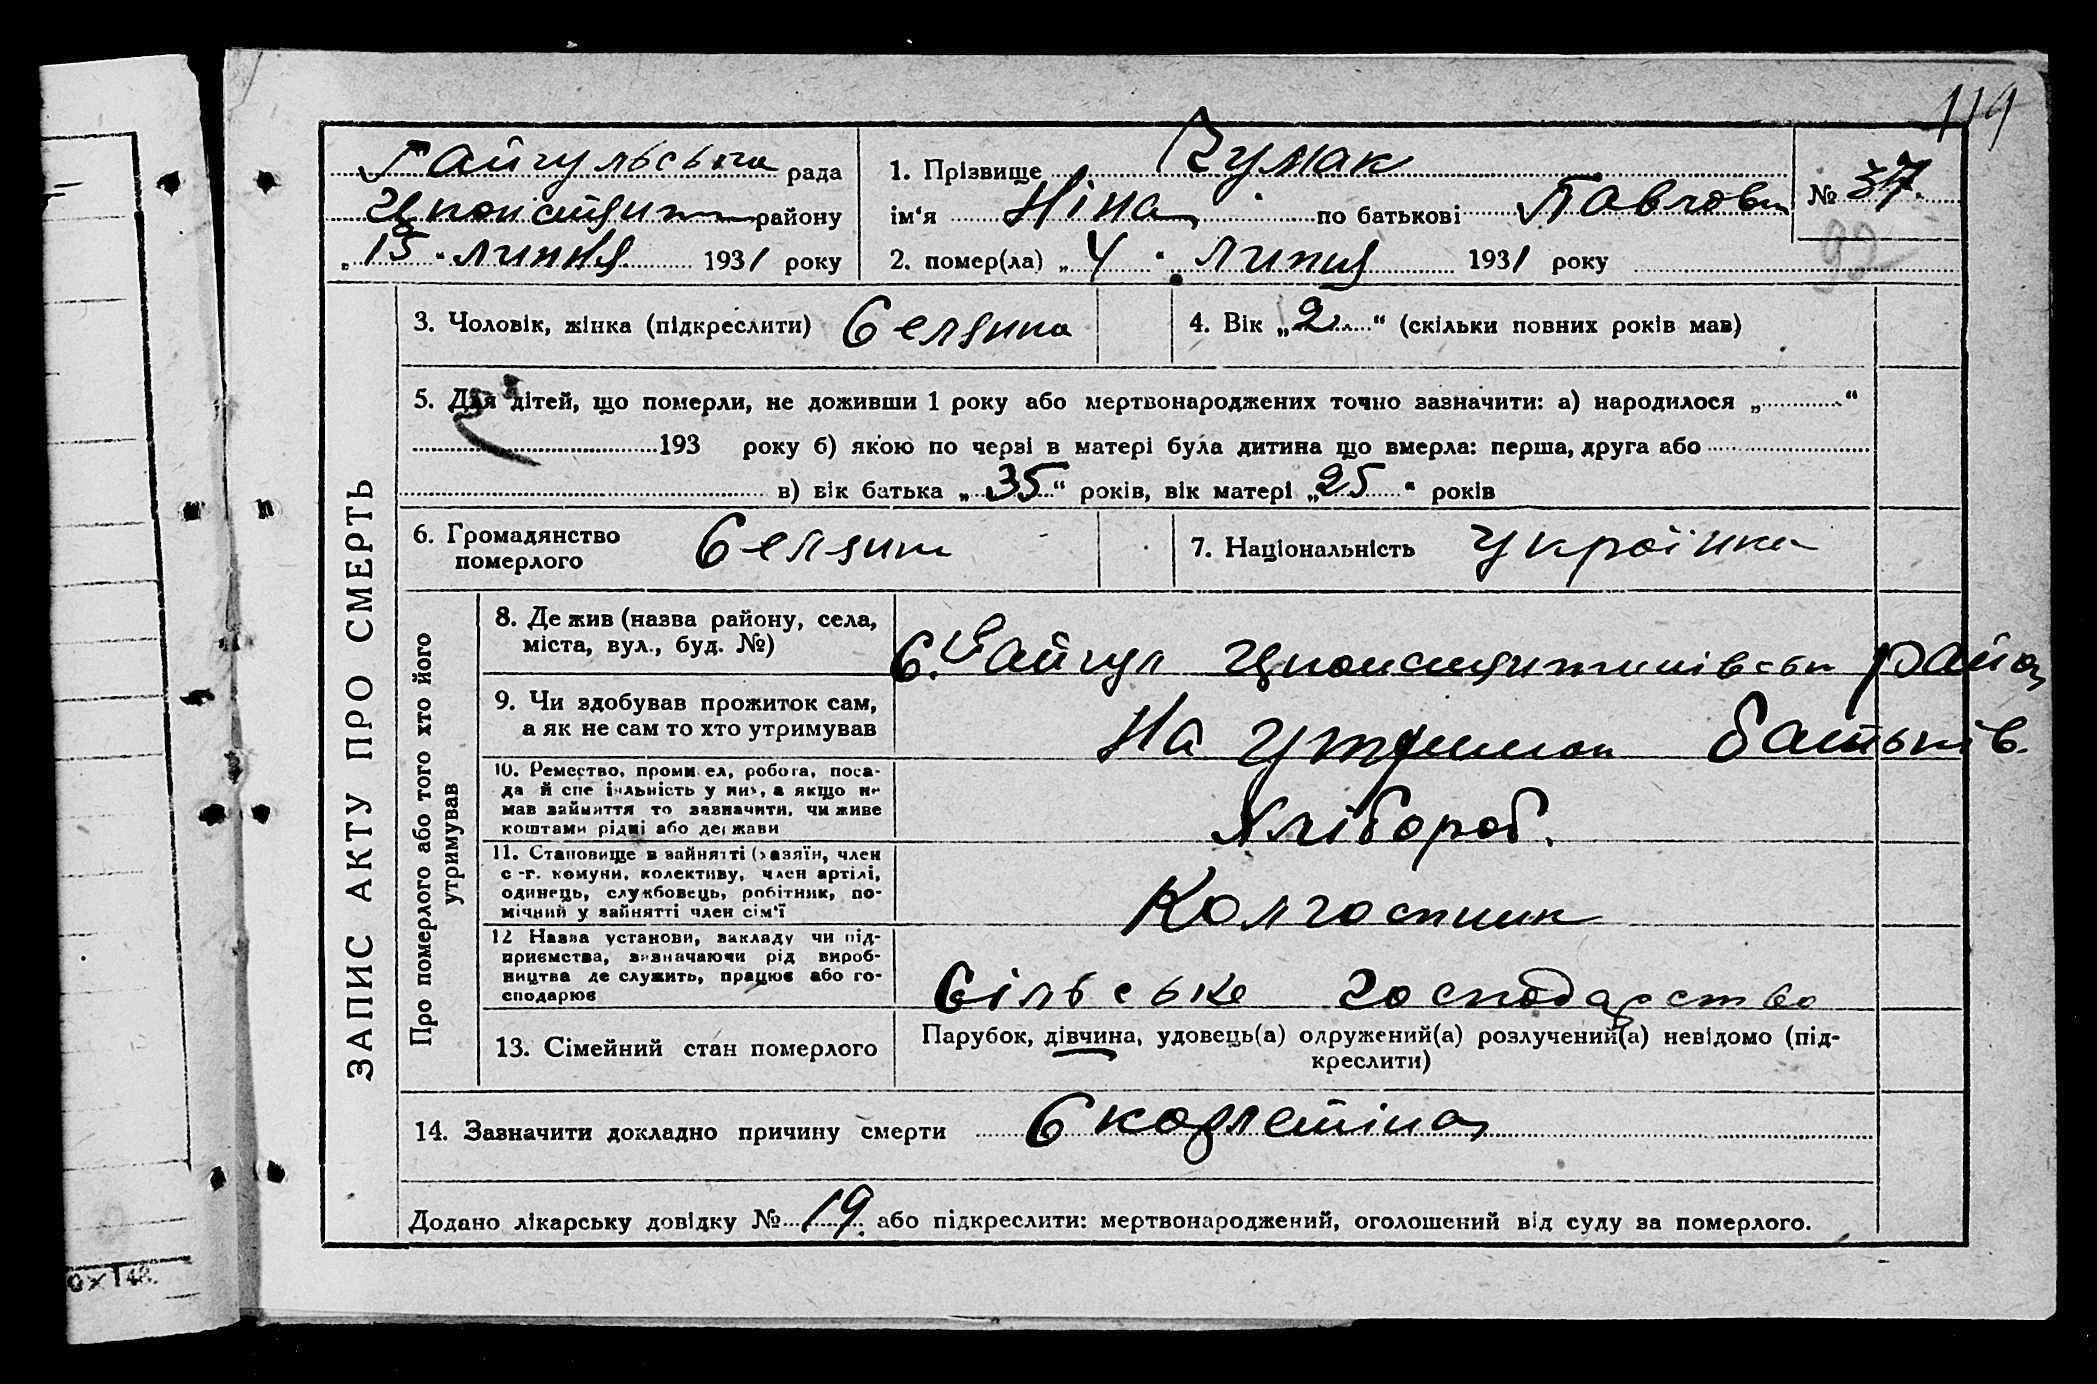 119
Гайгульська рада
району
„15“ липня 1931 року
1. Прізвище Чумак
ім‘я Ніна по батькові Павловн
2. помер(ла) „4“ липня 1931 року
№ 37.
92
ЗАПИС АКТУ ПРО СМЕРТЬ
3. Чоловік, жінка (підкреслити) Селянка
4. Вік „2“ (скільки повних років мав)
5. Для дітей, що померли, не доживши 1 року або мертвонароджених точно зазначити: а) народилося „ “
193 року б) якою по черзі в матері була дитина що вмерла: перша, друга або
в) вік батька „35“ років, вік матері „25“ років
6. Громадянство
померлого Селянин
7. Національність Українка
Про померлого або того хто його
утримував
8. Де жив (назва району, села,
міста, вул., буд. №)
С. Гайгул район
9. Чи здобував прожиток сам,
а як не сам то хто утримував
На утриман батьків.
10. Ремество, промисел, робота, поса-
да й спеціяльність у них, а якщо не
мав зайняття то зазначити, чи живе
коштами рідні або держави
Хлібороб.
11. Становище в зайнятті (хазяїн, член
с-г. комуни, колективу, член артілі,
одинець, службовець, робітник, по-
мічний у зайнятті член сім‘ї
Колгоспник
12 Назва установи, закладу чи під-
приємства, визначаючи рід вироб-
ництва де служить, працює або го-
сподарює
Сільське господарство
13. Сімейний стан померлого
Парубок, дівчина, удовець(а) одружений(а) розлучений(а) невідомо (під-
креслити)
14. Зазначити докладно причину смерти Скарлетіна
Додано лікарську довідку № 19. або підкреслити: мертвонароджений, оголошений від суду за померлого.